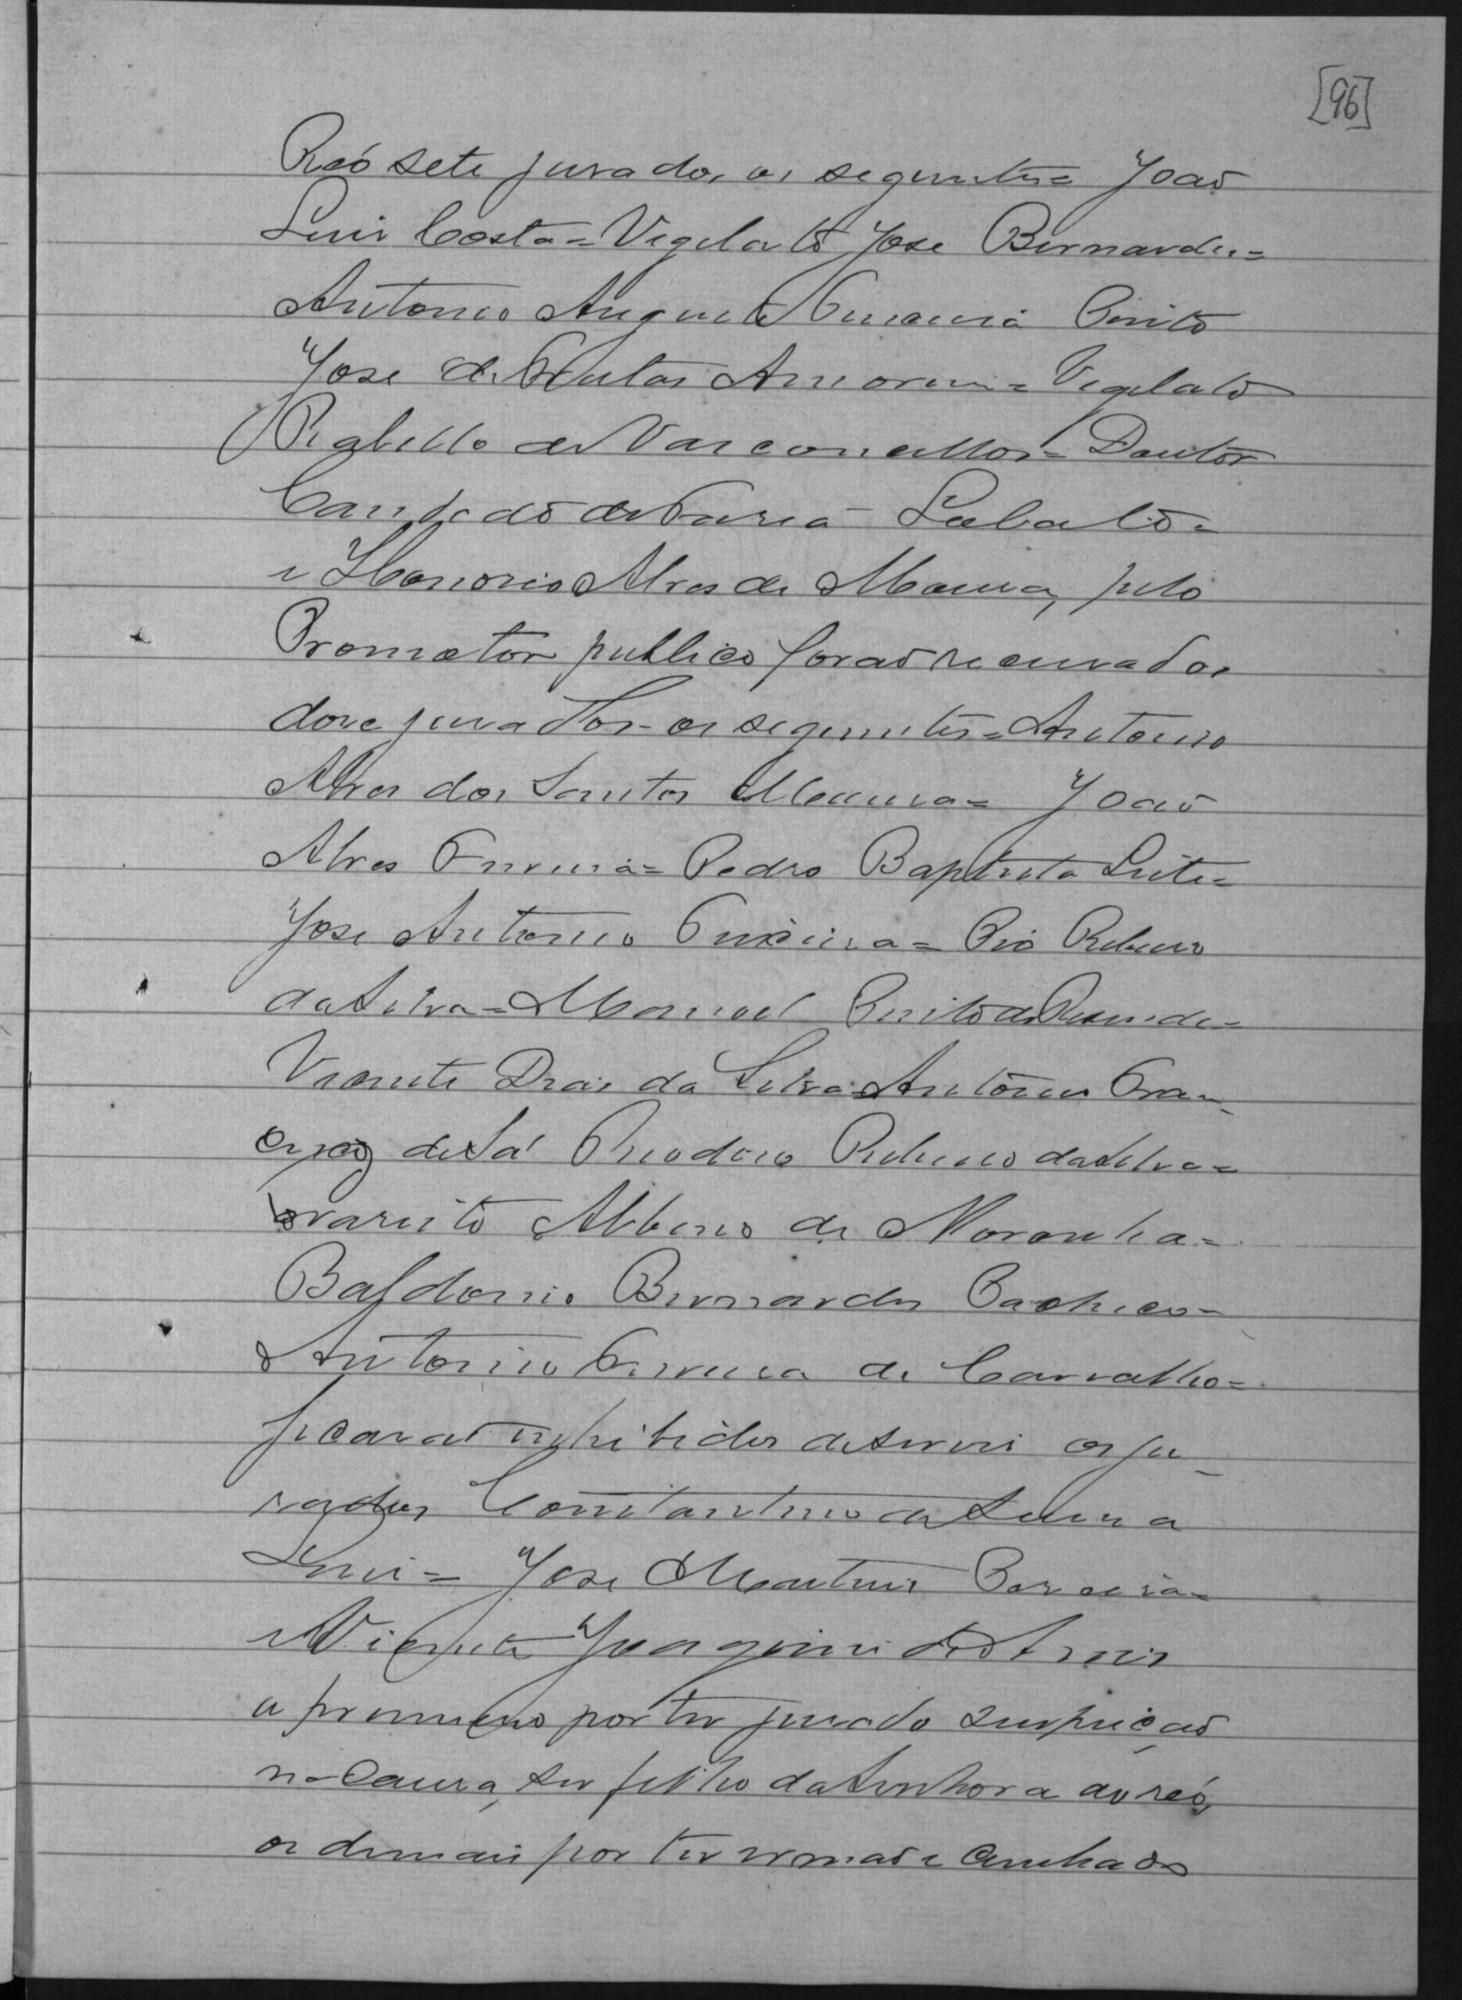 [96]
Reó sete jurados, os seguintes= João
Luis Costa= Vigilato José Bernardes=
Antonio Augusto Ferreira Pinto
José de Freitas Amorim= Vigilato
Rabello de Vasconcellos= Doutor
Candido de Faria Lobato=
e Honorio Alves de Moura, pelo
Promotor publico forão recusados
dose jurados- os seguintes= Antonio
Alves dos Santos Moura= João
Alves Ferreira= Pedro Baptista Leite=
José Antonio Teixeira= Pio Ribeiro
da Silva= Manoel Pinto de Resende=
Vicente Dias da Silva= Antonio Fran-
cisco de Sá Theodoro Ribeiro da Silva=
Evaristo Albino de Noronha=
Baldoino Bernardes Pacheco=
Antonio Ferreira de Carvalho=
ficarão inhibidos de servir os ju-
rados Constantino de
Luis= José Martins Pereira=
e Vicente Joaquim de Assis
o primeiro por ter jurado suspeição
na Causa, ser filho da Senhora do reó,
os demais por ter irmão e Cunhado